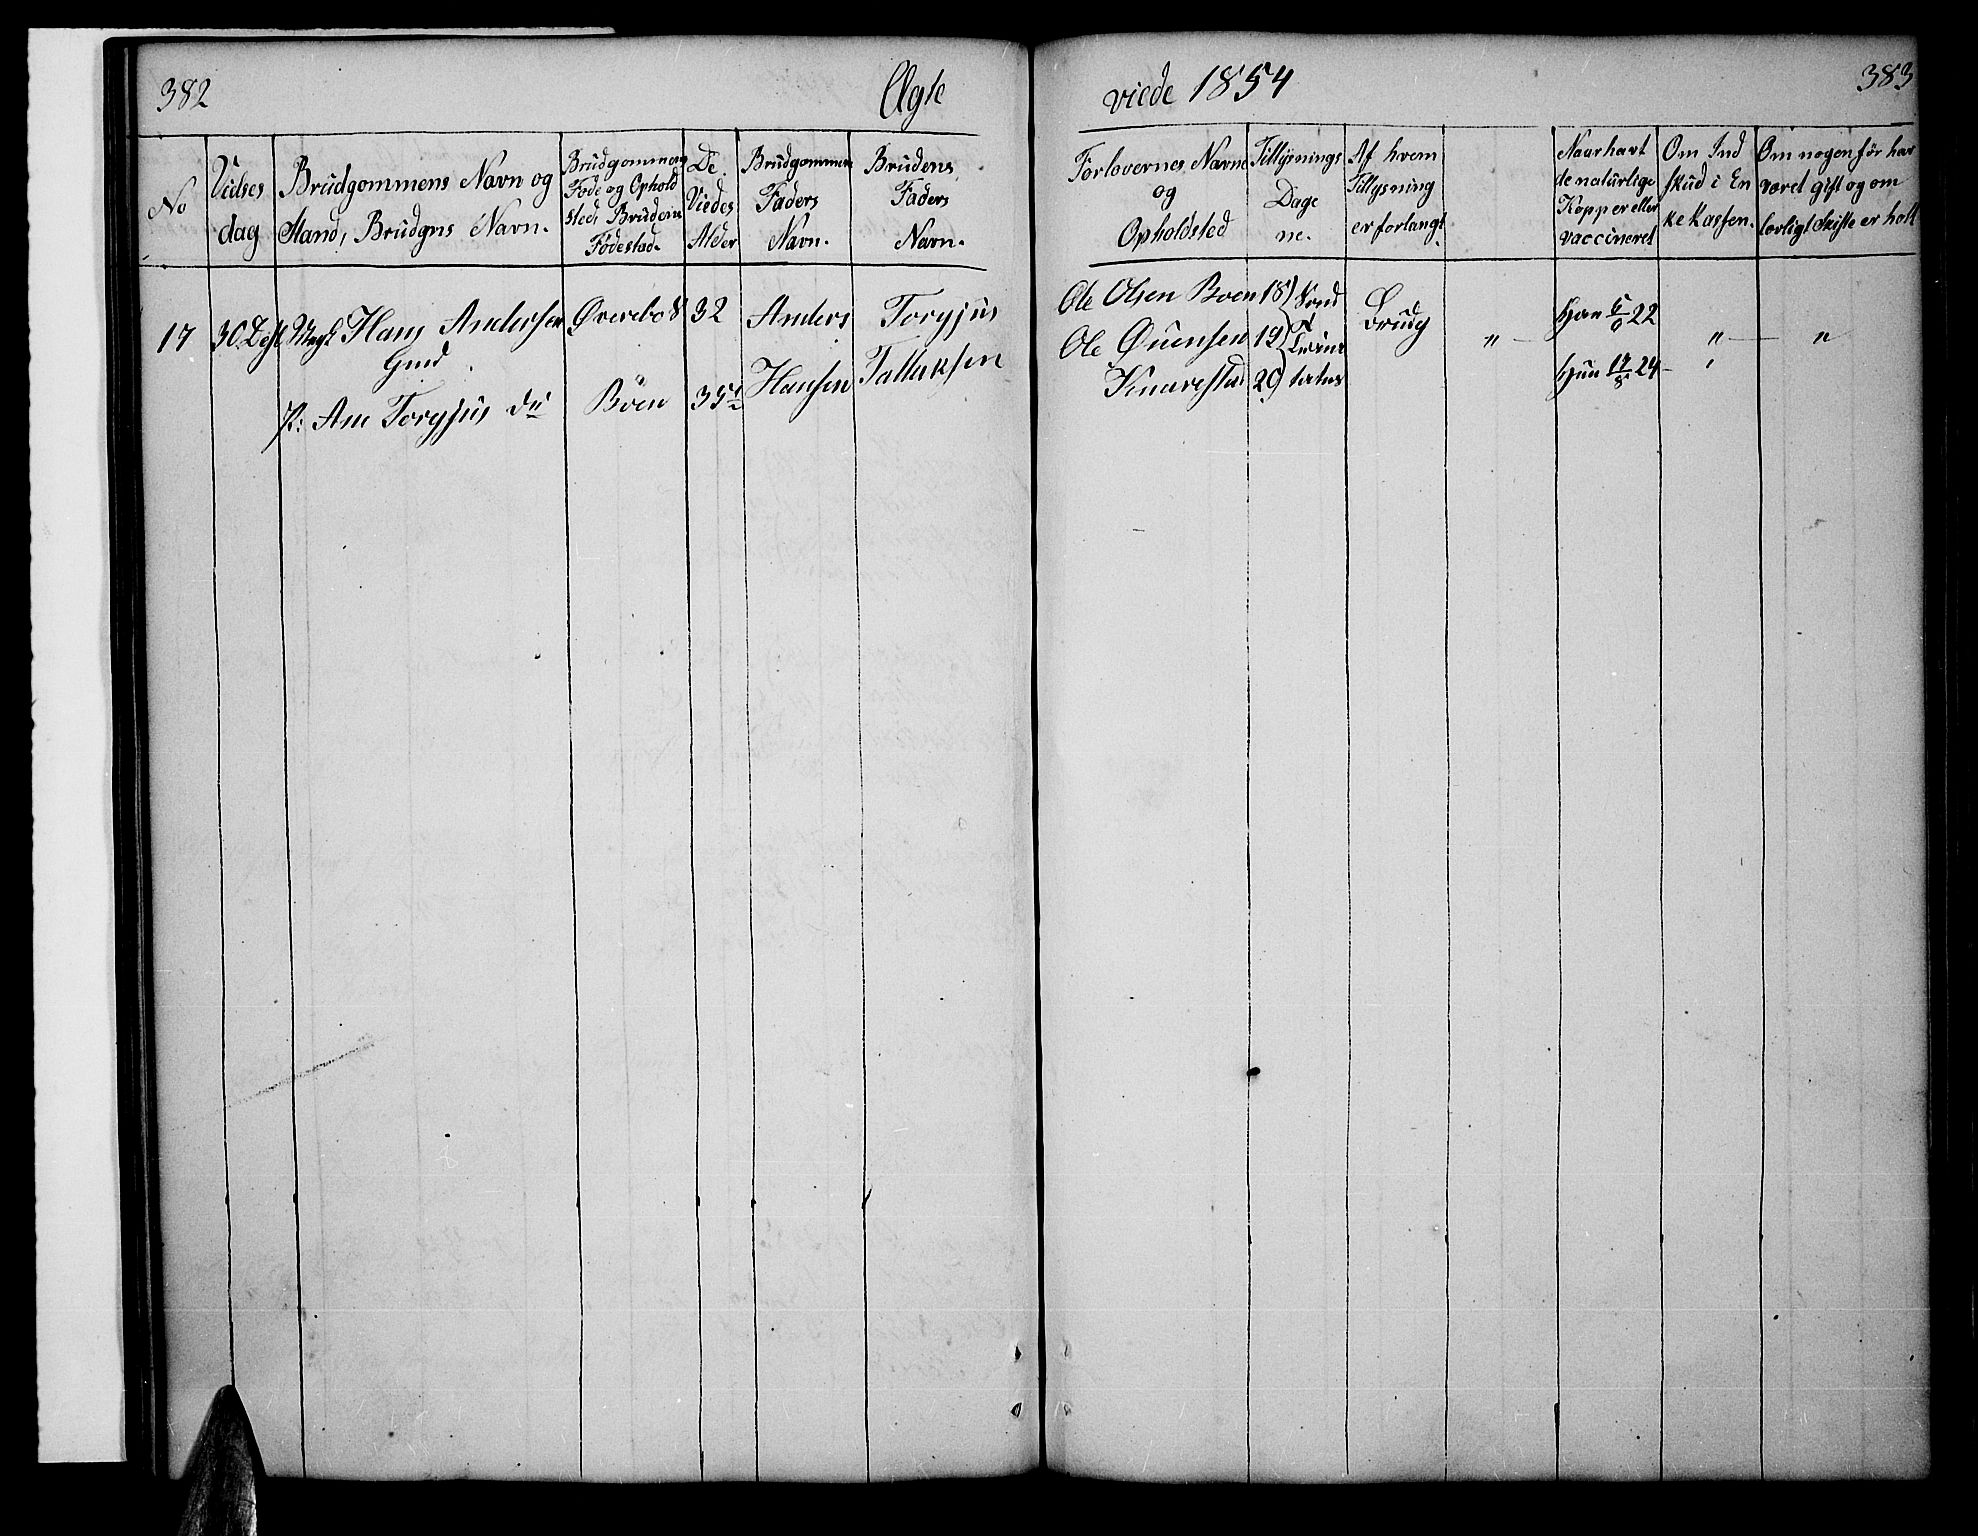 382
Ægte
No
Vidses
dag
Brudgommens Navn og
Stand, Brudens Navn.
Brudgommens
Føde og Ophold
sted, Brudens
Fødested.
De
Viedes
Alder
Brudgommens
Faders
Navn.
Brudens
Faders
Navn.
17
30 Hans Andersen
P: Torgjus
Øvrebø
Böen
32
35½
Anders
Hansen
Torgjus
Tallaksen
viede 1854
383
Forlovernes Navne
og
Opholdsted
Tillysnings
Dage
ne.
Af hvem
Tillysning
er forlangt
Naar havt
de naturlige
Kopper eller
vaccineret
Om Ind
skud i En
ke Kassen.
Om nogen før har
været gift og om
lovligt Skifte er holt
Ole Olsen Boen
Ole
Knarestad
18
19
20
Brudg
Han 22
Hun 24 -
"
"
"